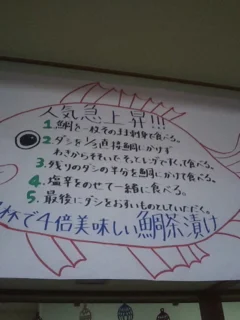 人気急上昇!!!
1.鯛を一枚そのまま刺身で食べる。
2.ダシを1/3直接鯛にかけず
わきからそそいで、そっとレンゲですくって食べる。
3.残りのダシの半分を鯛にかけて食べる。
4.塩辛をのせて一緒に食べる。
5.最後にダシをお吸いものとしていただく。
杯で4倍美味しい鯛茶漬け